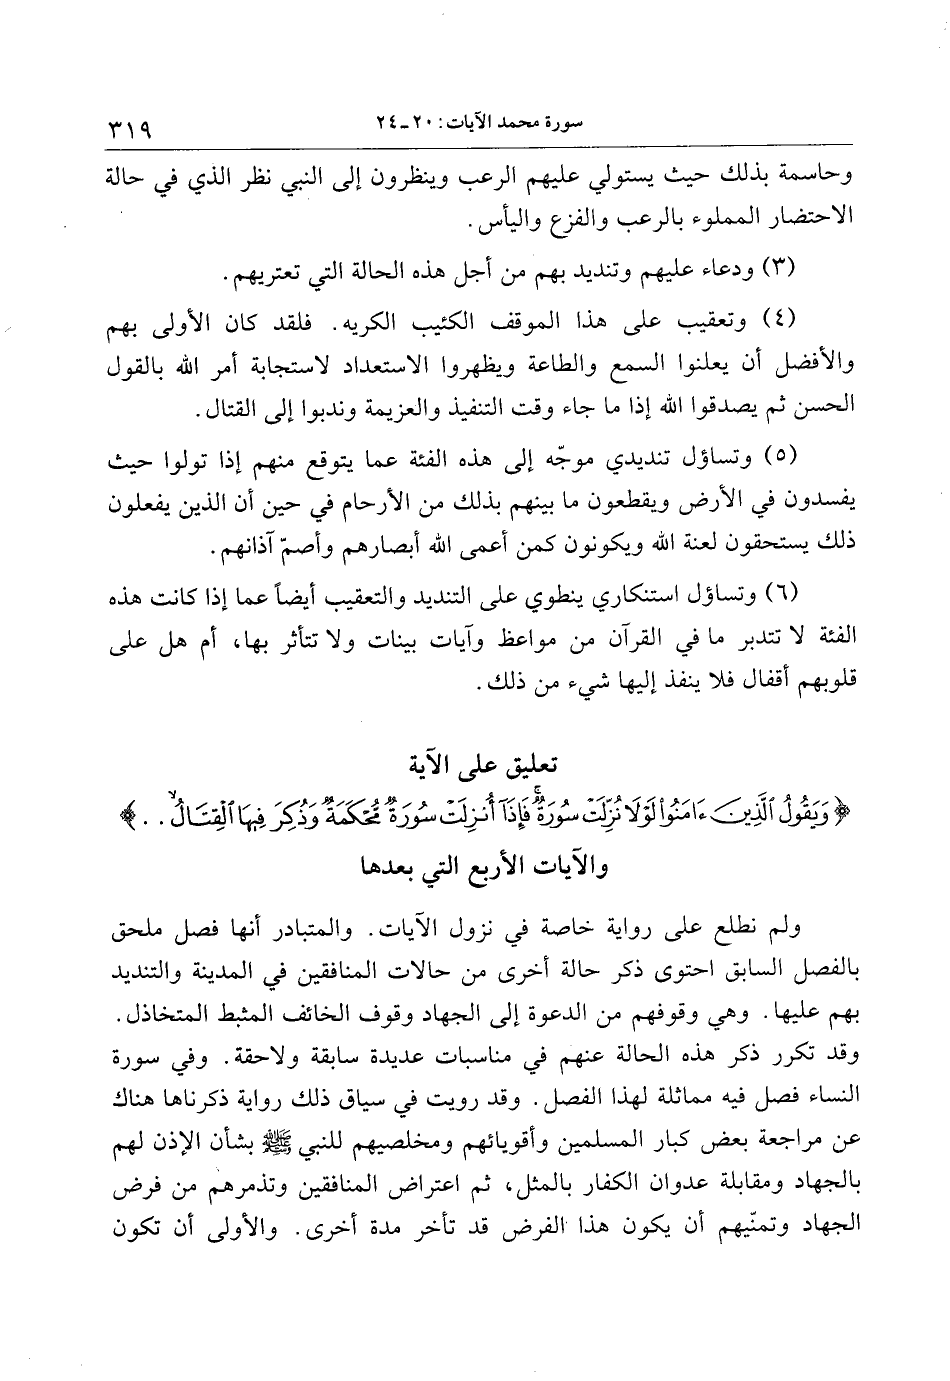 سورة محمد الآيات: ٢٠ـ٢٤
٣١٩
وحاسمة بذلك حيث يستولي عليهم الرعب وينظرون إلى النبي نظر الذي في حالة
الاحتضار المملوء بالرعب والفزع واليأس.
(٣) ودعاء عليهم وتنديد بهم من أجل هذه الحالة التي تعتريهم.
(٤) وتعقيب على هذا الموقف الكئيب الكريه. فلقد كان الأولى بهم
والأفضل أن يعلنوا السمع والطاعة ويظهروا الاستعداد لاستجابة أمر الله بالقول
الحسن ثم يصدقوا الله إذا ما جاء وقت التنفيذ والعزيمة وندبوا إلى القتال.
(٥) وتساؤل تنديدي موجّه إلى هذه الفئة عما يتوقع منهم إذا تولوا حيث
يفسدون في الأرض ويقطعون ما بينهم بذلك من الأرحام في حين أن الذين يفعلون
ذلك يستحقون لعنة الله ويكونون كمن أعمى الله أبصارهم وأصمّ آذانهم.
(٦) وتساؤل استنكاري ينطوي على التنديد والتعقيب أيضاً عما إذا كانت هذه
الفئة لا تتدبر ما في القرآن من مواعظ وآيات بينات ولا تتأثر بها، أم هل على
قلوبهم أقفال فلا ينفذ إليها شيء من ذلك.
تعليق على الآية
﴿وَيَقُولُ ٱلَّذِينَ ءَامَنُوا۟ لَوْلَا نُزِّلَتْ سُورَةٌۖ فَإِذَآ أُنزِلَتْ سُورَةٌ مُّحْكَمَةٌ وَذُكِرَ فِيهَا ٱلْقِتَالُۙ . .﴾
والآيات الأربع التي بعدها
ولم نطلع على رواية خاصة في نزول الآيات. والمتبادر أنها فصل ملحق
بالفصل السابق احتوى ذكر حالة أخرى من حالات المنافقين في المدينة والتنديد
بهم عليها. وهي وقوفهم من الدعوة إلى الجهاد وقوف الخائف المثبط المتخاذل.
وقد تكرر ذكر هذه الحالة عنهم في مناسبات عديدة سابقة ولاحقة. وفي سورة
النساء فصل فيه مماثلة لهذا الفصل. وقد رويت في سياق ذلك رواية ذكرناها هناك
عن مراجعة بعض كبار المسلمين وأقويائهم ومخلصيهم للنبي ﷺ بشأن الإذن لهم
بالجهاد ومقابلة عدوان الكفار بالمثل، ثم اعتراض المنافقين وتذمرهم من فرض
الجهاد وتمنّيهم أن يكون هذا الفرض قد تأخر مدة أخرى. والأولى أن تكون